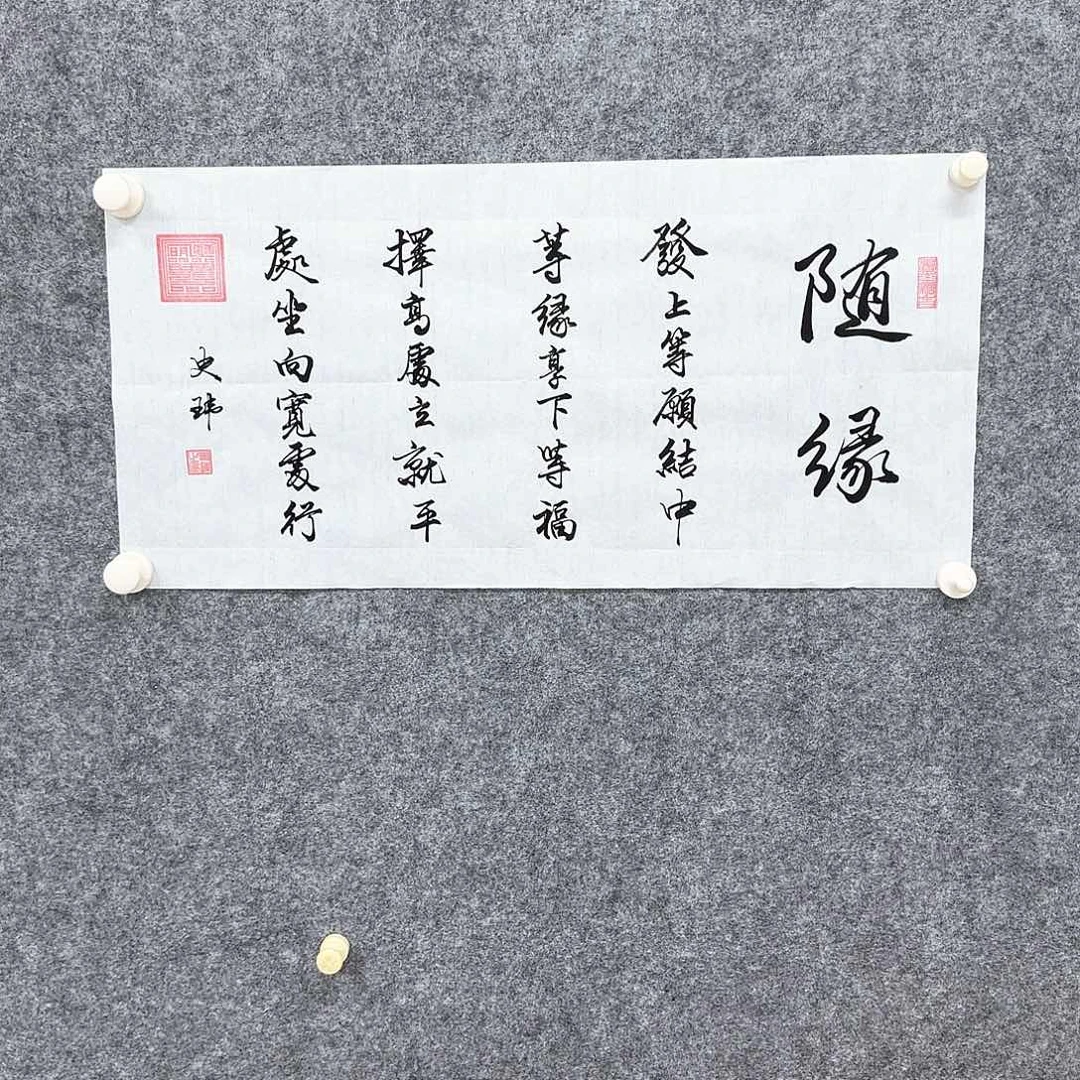 随缘
發上等願結中
等缘享下等福
擇高處立就平
處坐向寬處行
史玮